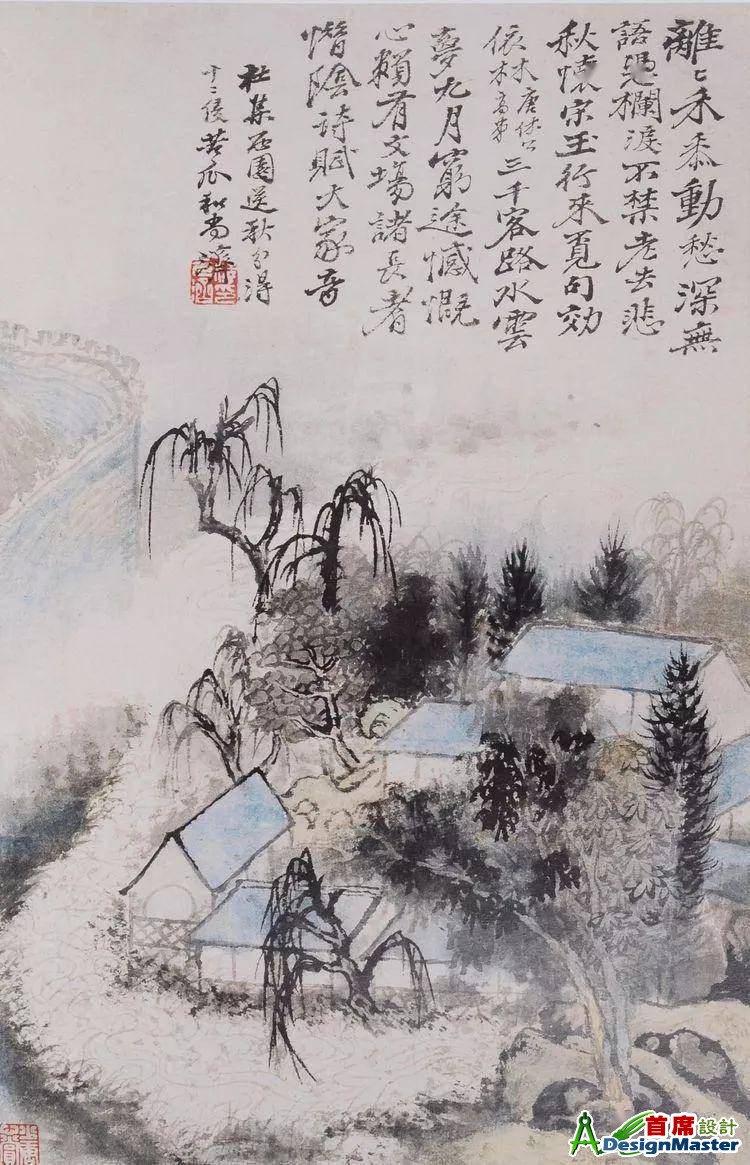 離〻禾黍動愁深無
語過欄淚不禁老去悲
秋懷宋玉行來覓句効
依木
三千客路水雲
夢九月窮途憾慨
心賴有文場諸長者
惜陰詩賦大家音
社集西園送秋分得
十二侵苦瓜和尚濟
首席設計
ADesignMaster